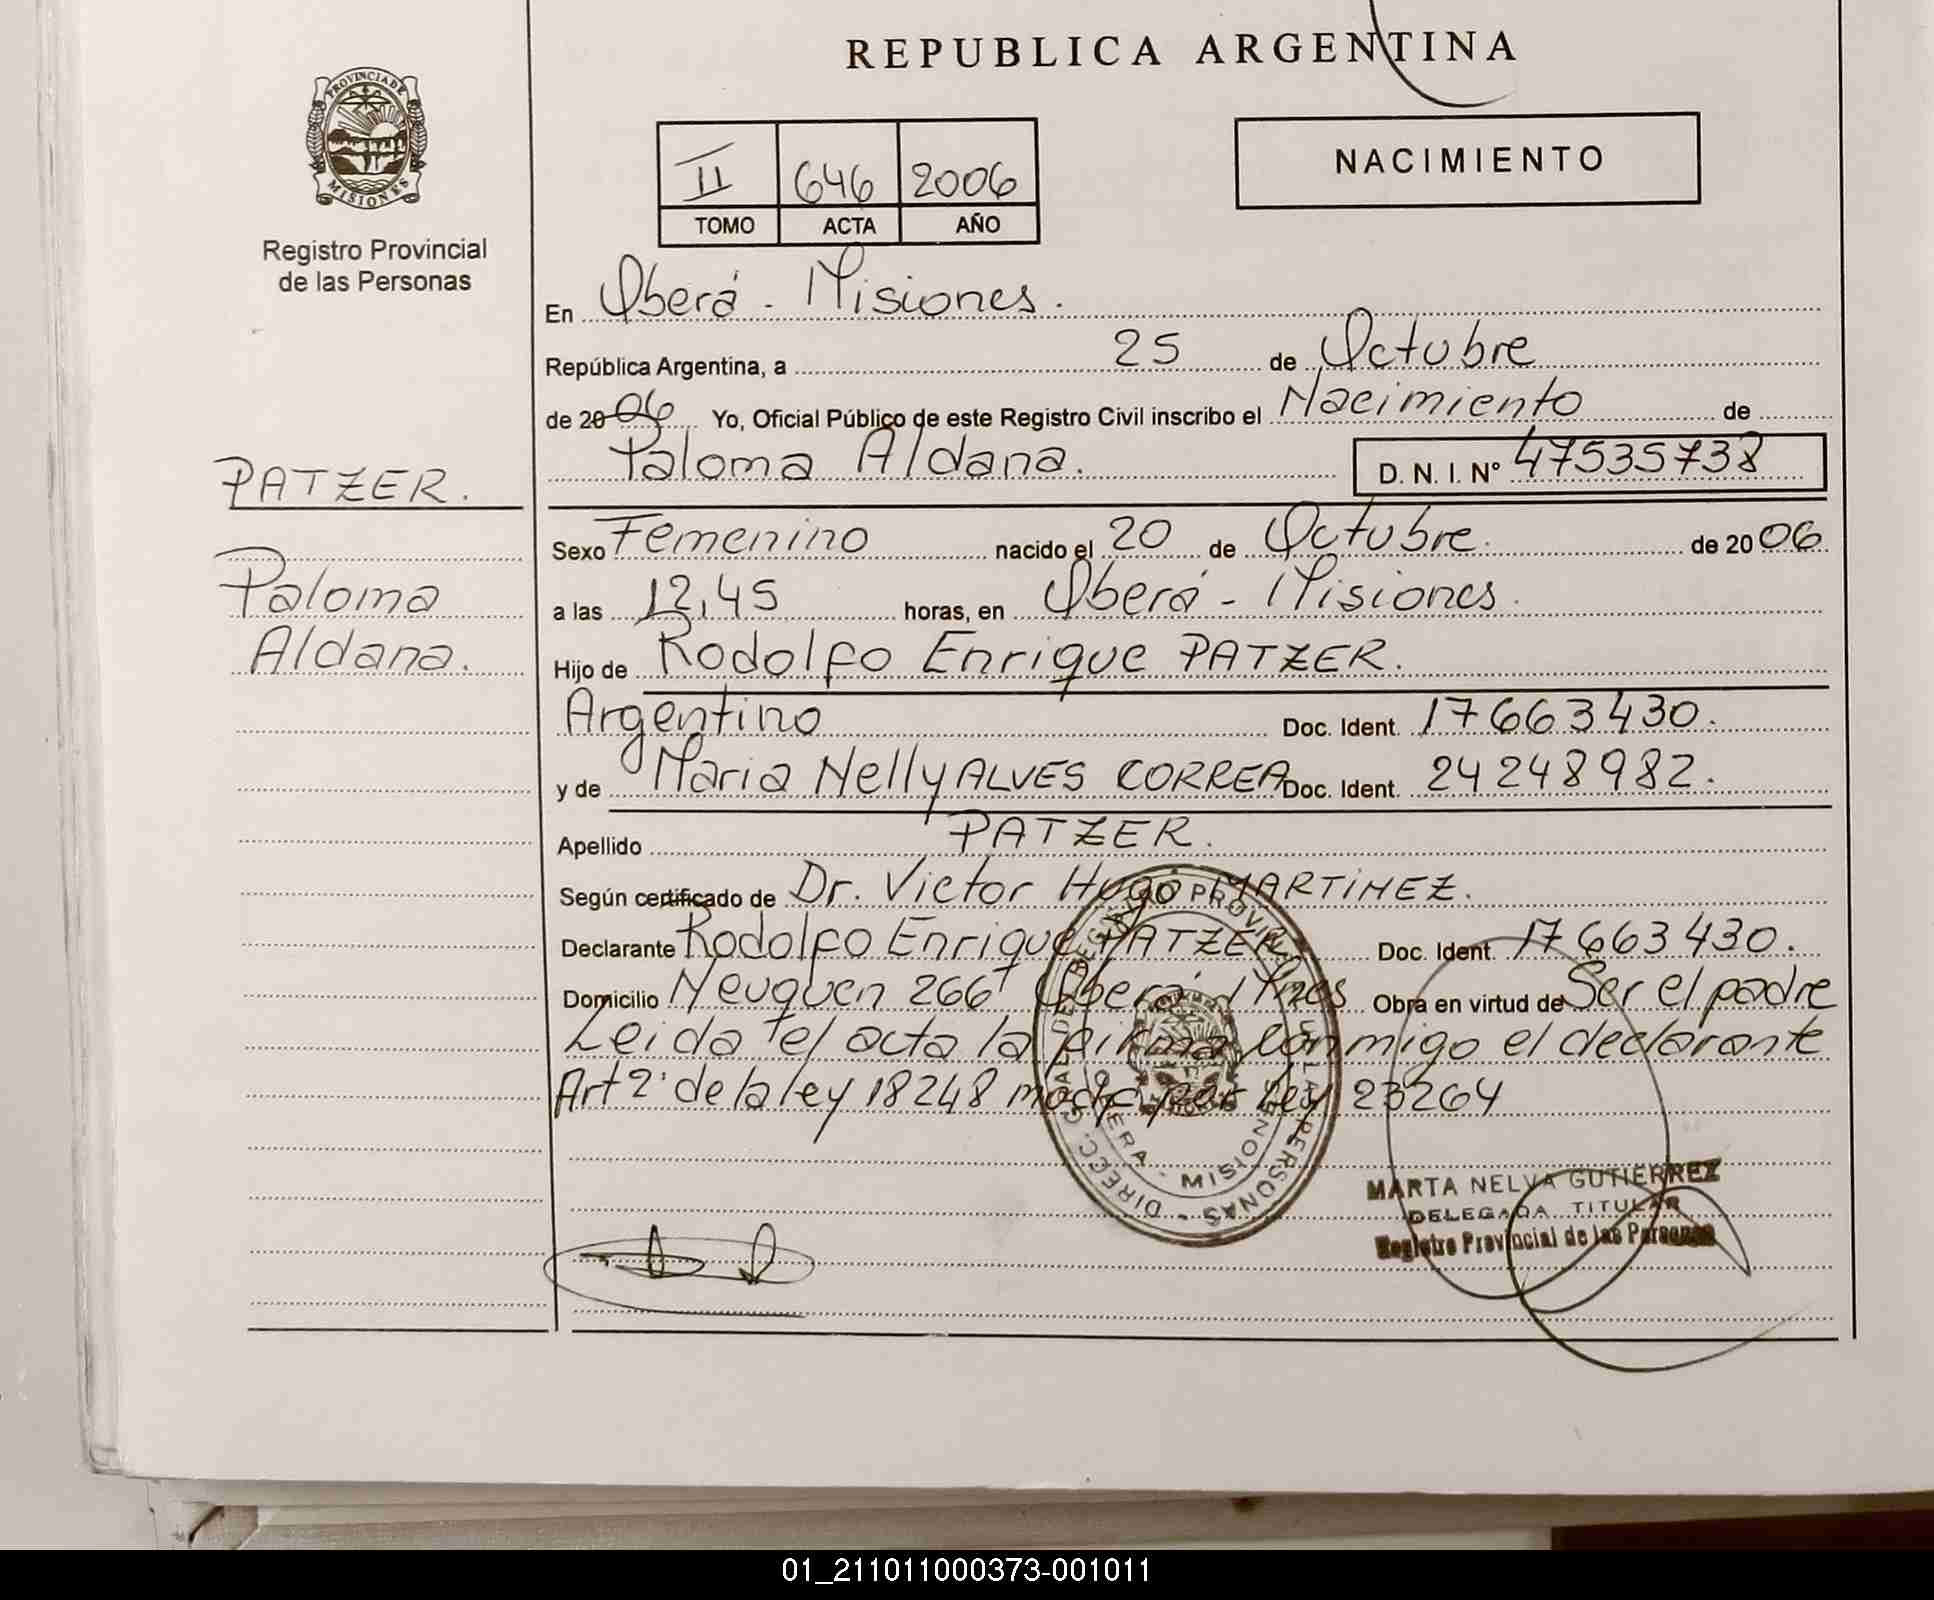 REPUBLICA ARGENTINA
PROVINCIA DE
MISIONES
Registro Provincial
de las Personas
II 646 2006
TOMO ACTA AÑO
NACIMIENTO
En Oberá - Misiones.
República Argentina, a 25 de Octubre
de 2006 Yo, Oficial Público de este Registro Civil inscribo el Nacimiento de
Paloma Aldana. D. N. I. Nº 47535738
PATZER.
Paloma
Aldana.
Sexo Femenino nacido el 20 de Octubre. de 2006
a las 12,45 horas, en Oberá - Misiones.
Hijo de Rodolfo Enrique PATZER.
Argentino Doc. Ident. 17663430.
y de Maria Nelly ALVES CORREA Doc. Ident. 24248982.
Apellido PATZER.
Según certificado de Dr. Victor Hugo MARTINEZ.
Declarante Rodolfo Enrique PATZER Doc. Ident. 17663430.
Domicilio Neuquen 266 Oberá Mnes Obra en virtud de Ser el padre
Leida el acta la firma conmigo el declarante
Art 2º de la ley 18248 modf por Ley 23264
MISIONES
MARTA NELVA GUTIERREZ
DELEGADA TITULAR
Registro Provincial de las Personas
01_211011000373-001011